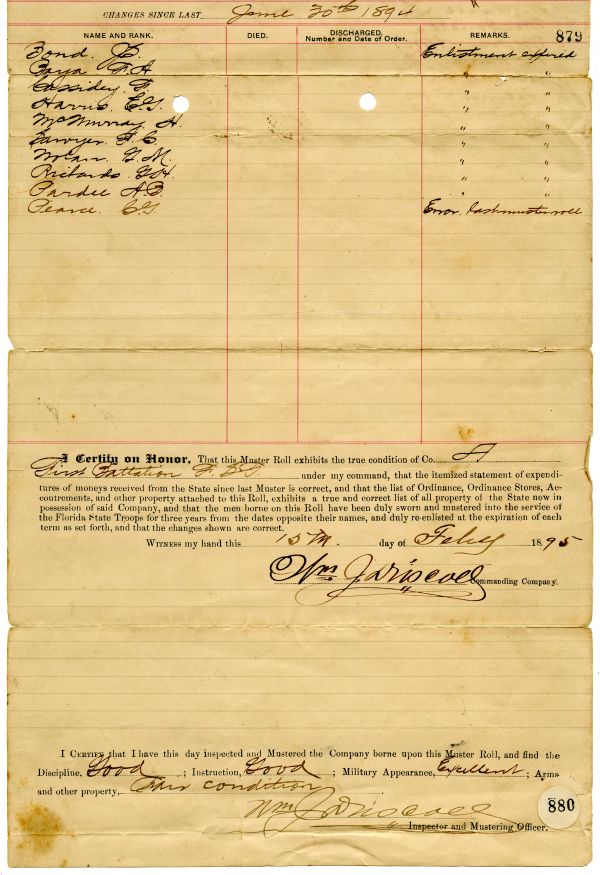 CHANGES SINCE LAST June 30th 1894
NAME AND RANK. DIED. DISCHARGED. Number and Date of Order. REMARKS. 879
Bond. Enlistment expired
Baya F. H " "
Cassidey. F. " "
Harris C.G. " "
McMurray H. " "
Sawyer. F. C. " "
Nolan. G. M. " "
Richards. G. H. " "
Pardee A.B. " "
Pearce. C.G. Error. last muster roll
I Certify on Honor, That this Muster Roll exhibits the true condition of Co. A
First Battalion F. S. T. under my command, that the itemized statement of expendi-
tures of moneys received from the State since last Muster is correct, and that the list of Ordinance, Ordinance Stores, Ac-
coutrements, and other property attached to this Roll, exhibits a true and correct list of all property of the State now in
possession of said Company, and that the men borne on this Roll have been duly sworn and mustered into the service of
the Florida State Troops for three years from the dates opposite their names, and duly re-enlisted at the expiration of each
term as set forth, and that the changes shown are correct.
WITNESS my hand this 15th. day of Feby 1895
Wm J Driscoll Commanding Company.
I CERTIFY that I have this day inspected and Mustered the Company borne upon this Muster Roll, and find the
Discipline, Good ; Instruction, Good ; Military Appearance, Excellent ; Arms
and other property, Fair condition
Wm J Driscoll
Inspector and Mustering Officer.
880